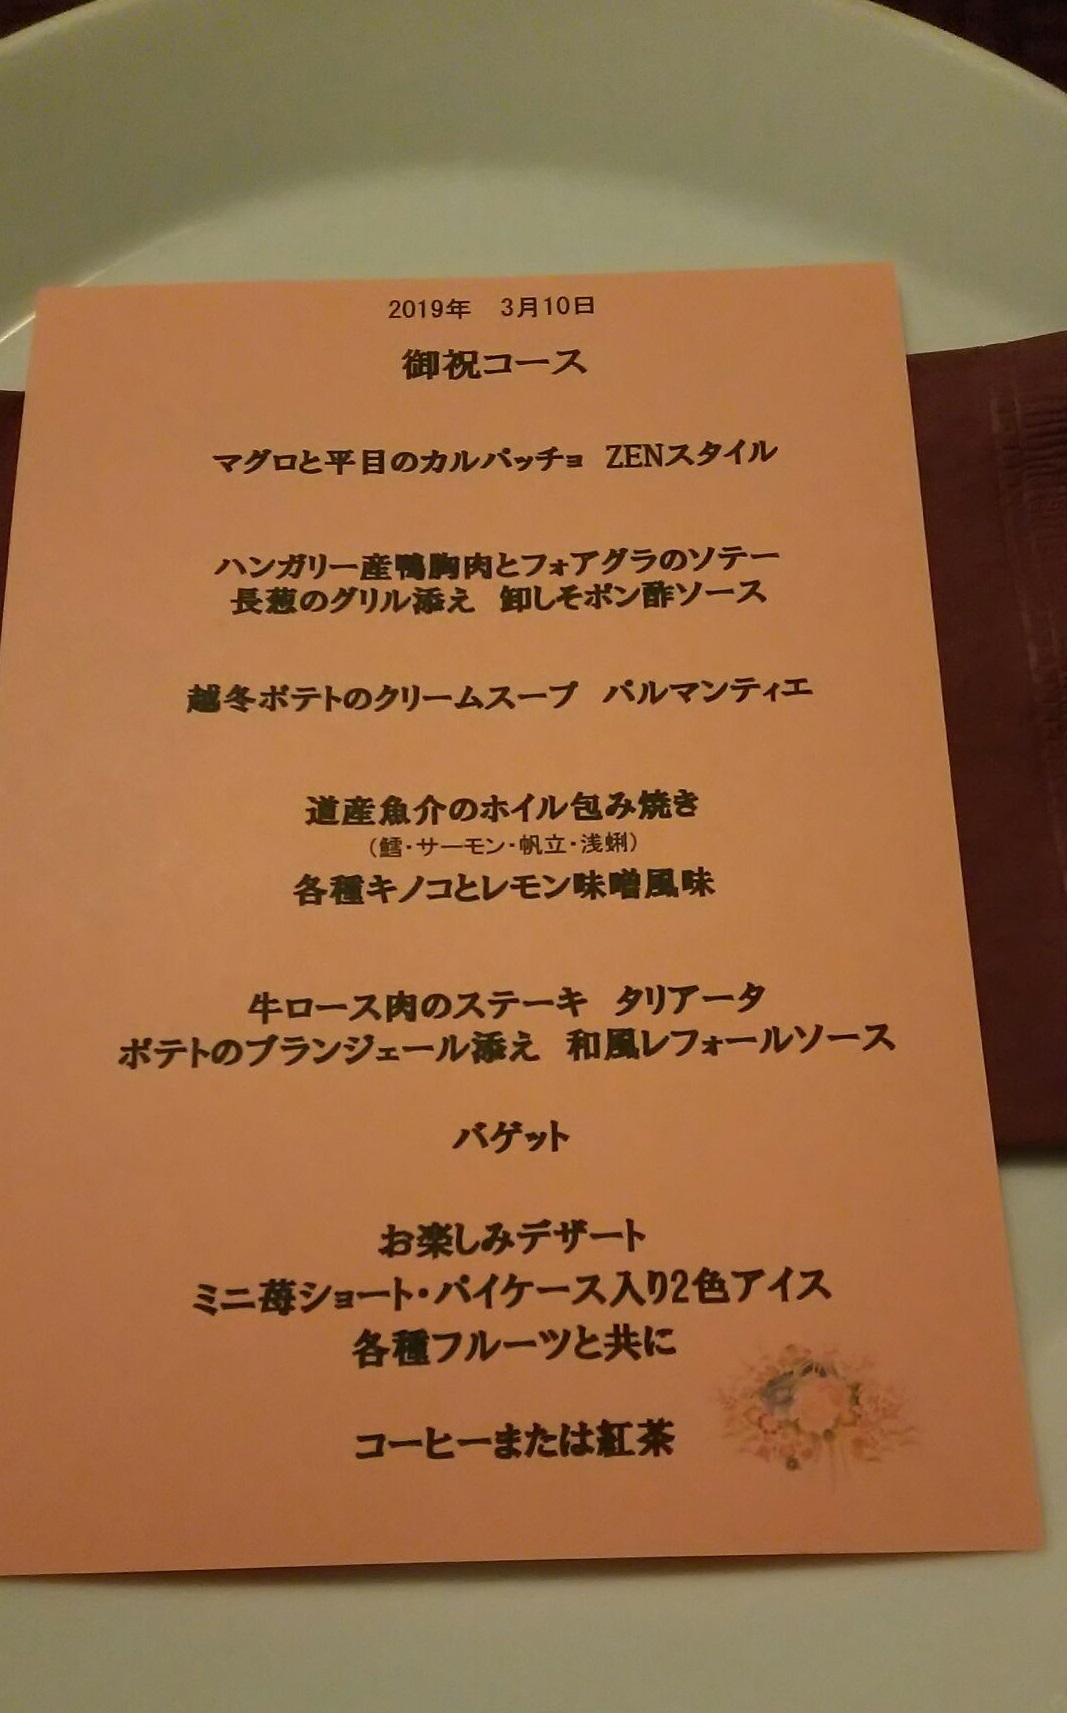 2019年　3月10日
御祝コース
マグロと平目のカルパッチョ　ZENスタイル
ハンガリー産鴨胸肉とフォアグラのソテー
長葱のグリル添え　卸しそポン酢ソース
越冬ポテトのクリームスープ　パルマンティエ
道産魚介のホイル包み焼き
（鱈・サーモン・帆立・浅蜊）
各種キノコとレモン味噌風味
牛ロース肉のステーキ　タリアータ
ポテトのブランジェール添え　和風レフォールソース
バゲット
お楽しみデザート
ミニ苺ショート・パイケース入り2色アイス
各種フルーツと共に
コーヒーまたは紅茶